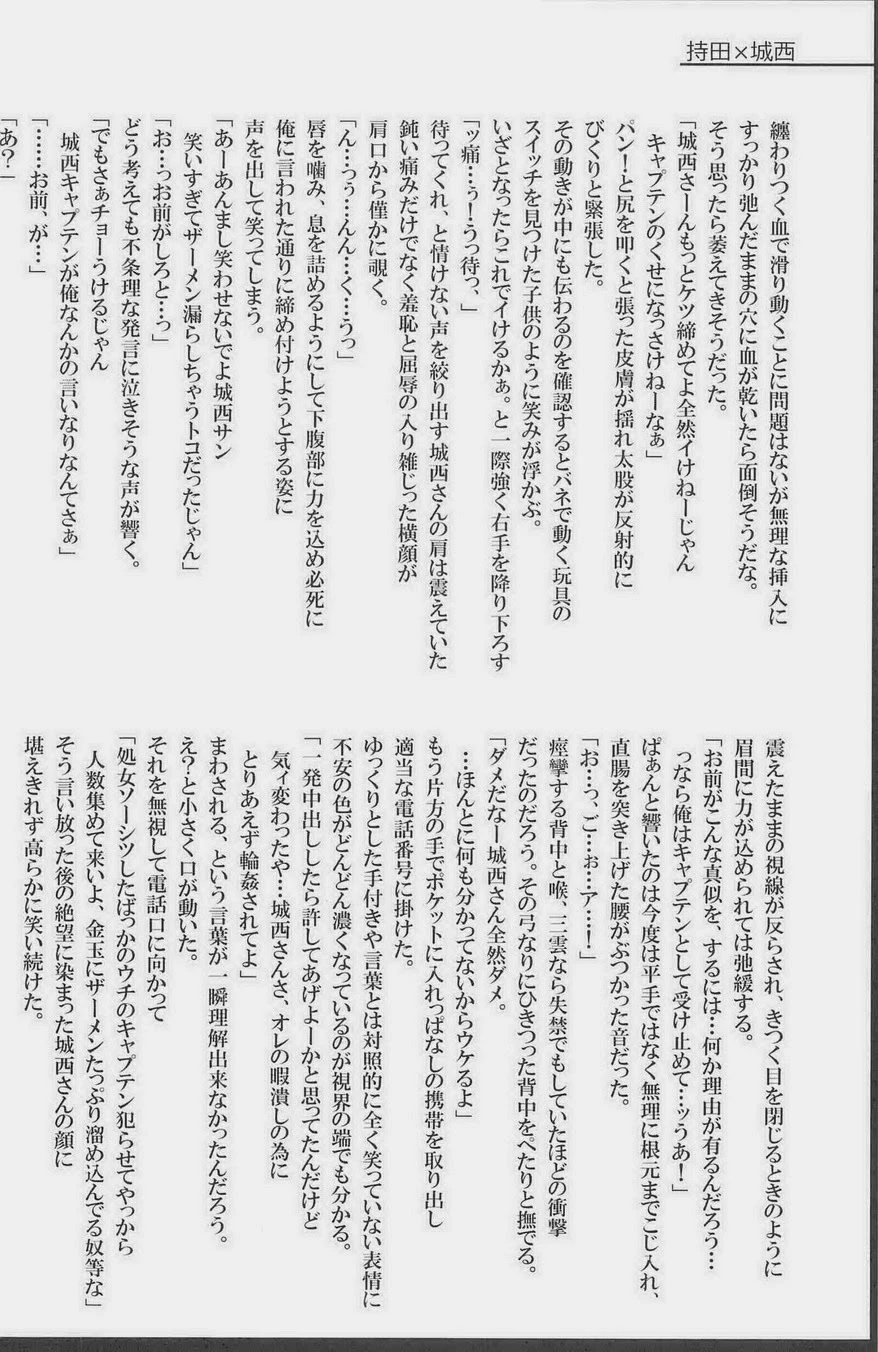 持田×城西
纏わりつく血で滑り動くことに問題はないが無理な挿入に
すっかり弛んだままの穴に血が乾いたら面倒そうだな。
そう思ったら萎えてきそうだった。
「城西さーんもっとケツ締めてよ全然イけねーじゃん
キャプテンのくせになっさけねーなぁ」
パン！と尻を叩くと張った皮膚が揺れ太股が反射的に
びくりと緊張した。
その動きが中にも伝わるのを確認するとバネで動く玩具の
スイッチを見つけた子供のように笑みが浮かぶ。
いざとなったらこれでイけるかぁ。と一際強く右手を降り下ろす
「ッ痛…ぅ！うっ待っ、」
待ってくれ、と情けない声を絞り出す城西さんの肩は震えていた
鈍い痛みだけでなく羞恥と屈辱の入り雑じった横顔が
肩口から僅かに覗く。
「ん…っぅ…んん…く…うっ」
唇を噛み、息を詰めるようにして下腹部に力を込め必死に
俺に言われた通りに締め付けようとする姿に
声を出して笑ってしまう。
「あーあんまし笑わせないでよ城西サン
笑いすぎてザーメン漏らしちゃうトコだったじゃん」
「お…っお前がしろと…っ」
どう考えても不条理な発言に泣きそうな声が響く。
「でもさぁチョーうけるじゃん
城西キャプテンが俺なんかの言いなりなんてさぁ」
「……お前、が…」
「あ？」
震えたままの視線が反らされ、きつく目を閉じるときのように
眉間に力が込められては弛緩する。
「お前がこんな真似を、するには…何か理由が有るんだろう…
っなら俺はキャプテンとして受け止めて…ッうあ！」
ぱぁんと響いたのは今度は平手ではなく無理に根元までこじ入れ、
直腸を突き上げた腰がぶつかった音だった。
「お…っ、ご…ぉ…ア…！」
痙攣する背中と喉、三雲なら失禁でもしていたほどの衝撃
だったのだろう。その弓なりにひきつった背中をぺたりと撫でる。
「ダメだなー城西さん全然ダメ。
…ほんとに何も分かってないからウケるよ」
もう片方の手でポケットに入れっぱなしの携帯を取り出し
適当な電話番号に掛けた。
ゆっくりとした手付きや言葉とは対照的に全く笑っていない表情に
不安の色がどんどん濃くなっているのが視界の端でも分かる。
「一発中出ししたら許してあげよーかと思ってたんだけど
気ィ変わったや…城西さんさ、オレの暇潰しの為に
とりあえず輪姦されてよ」
まわされる、という言葉が一瞬理解出来なかったんだろう。
え？と小さく口が動いた。
それを無視して電話口に向かって
「処女ソーシツしたばっかのウチのキャプテン犯らせてやっから
人数集めて来いよ、金玉にザーメンたっぷり溜め込んでる奴等な」
そう言い放った後の絶望に染まった城西さんの顔に
堪えきれず高らかに笑い続けた。